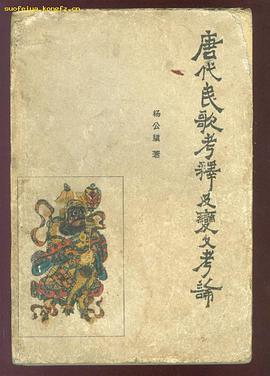 suofeiya.kongfz.cn
唐代民歌考释及變文考論
杨公骥 著